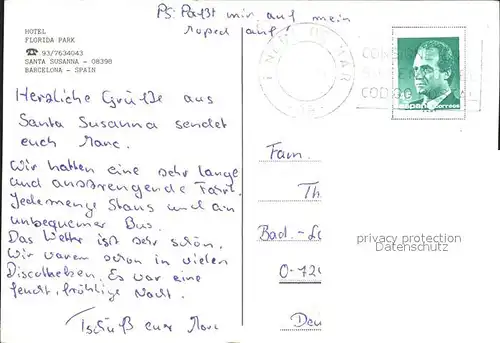 PS: Paßt mir auf mein
Moped auf!
HOTEL
FLORIDA PARK
☎ 93/7634043
SANTA SUSANNA - 08398
BARCELONA - SPAIN
DE MAR
CODIGO
España correos
Herzliche Grüße aus
Santa Susanna sendet
euch Marc.
Wir hatten eine sehr lange
und anstrengende Fahrt.
Jedemenge Staus und ein
unbequemer Bus.
Das Wetter ist sehr schön.
Wir waren schon in vielen
Discotheken. Es war eine
feucht, fröhliche Nacht.
Tschüß euer Marc
Fam.
Th
Bad.-
O-72
Deu
privacy protection
Datenschutz